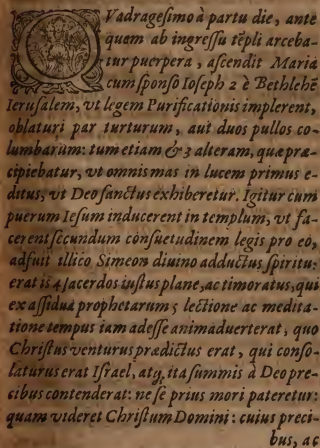 QVadragesimo à partu die, ante
quem ab ingressu tẽpli arceba-
tur puerpera, ascendit Maria
cum sponso Ioseph 2 è Bethlehẽ
Ierusalem, vt legem Purificationis implerent,
oblaturi par turturum, aut duos pullos co-
lumbarum: tum etiam & 3 alteram, quæ præ-
cipiebatur, vt omnis mas in lucem primus e-
ditus, vt Deo sanctus exhiberetur. Igitur cum
puerum Iesum inducerent in templum, vt fa-
cerent secundum consuetudinem legis pro eo,
adfuit illico Simeon diuino adductus spiritu:
erat is 4 sacerdos iustus plane, ac timoratus, qui
ex assidua prophetarum 5 lectione ac medita-
tione tempus iam adesse animaduerterat, quo
Christus venturus prædictus erat, qui conso-
laturus erat Israel, atq, ita summis à Deo pre-
cibus contenderat: ne se prius mori pateretur:
quam videret Christum Domini: cuius preci-
bus, ac